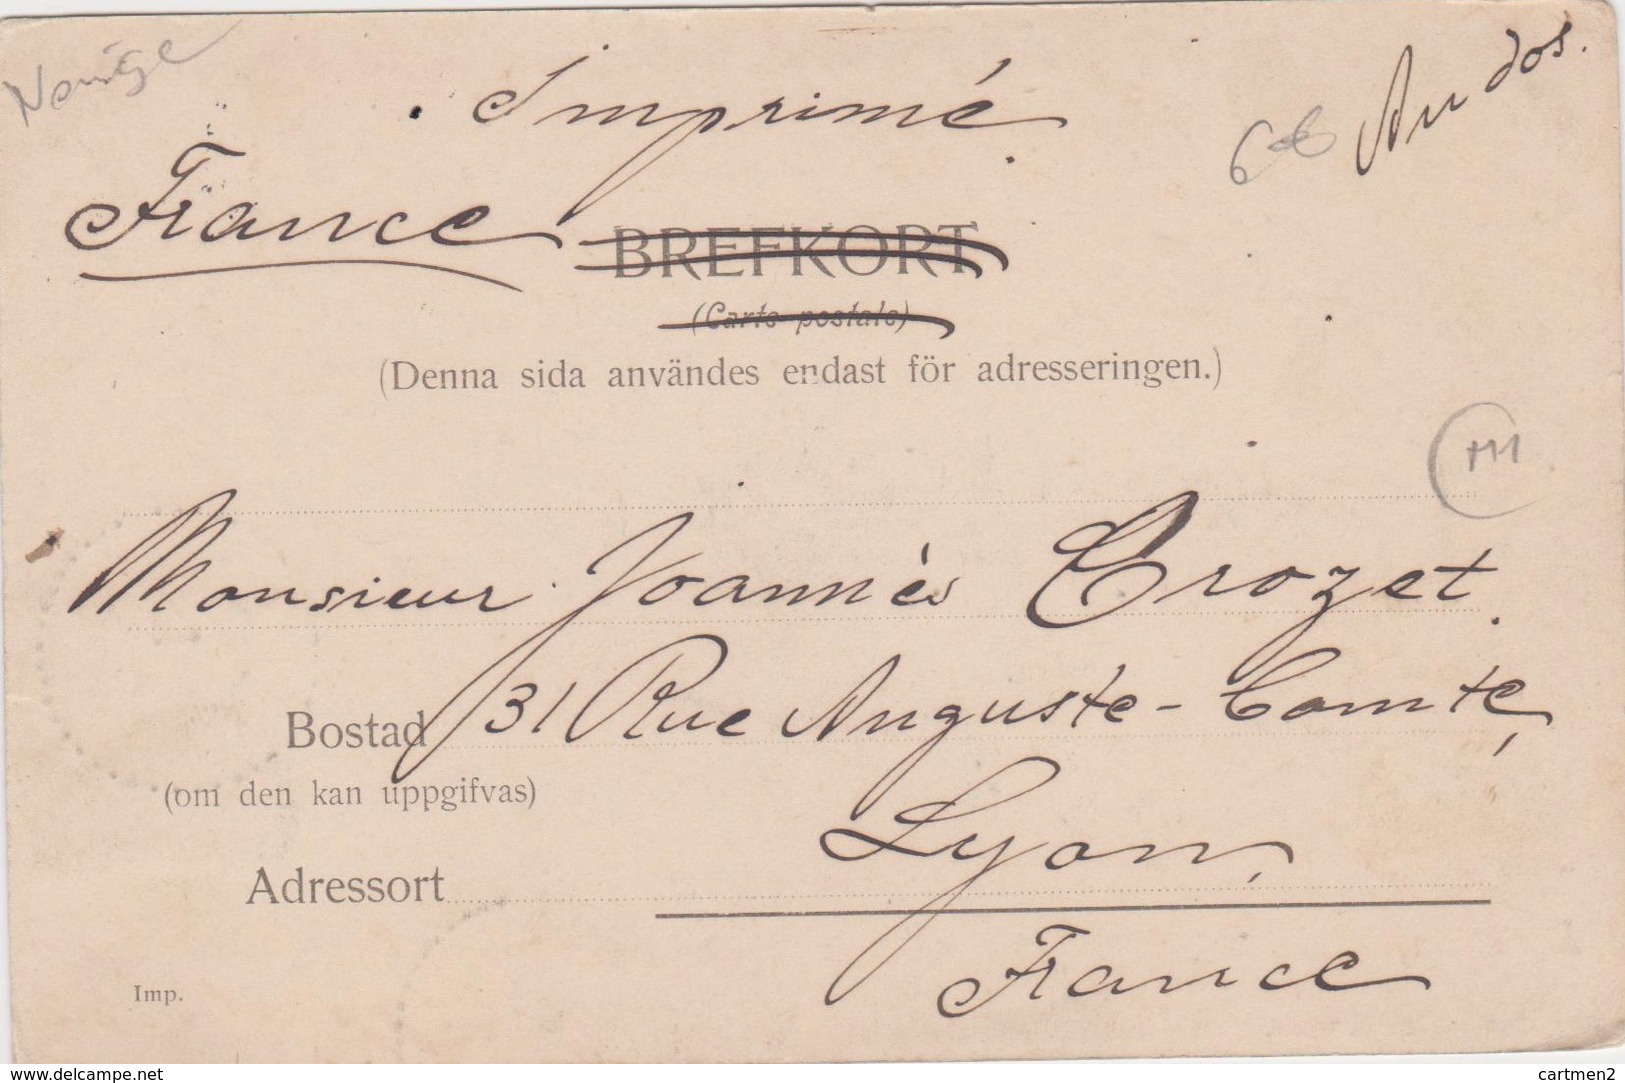 . Imprimé
Au dos.
France
BREFKORT
(Carte postale)
(Denna sida användes endast för adresseringen.)
M
Monsieur Joannès Crozet.
Bostad 31 Rue Auguste-Comte,
(om den kan uppgifvas)
Lyon,
Adressort
France
Imp.
www.delcampe.net
cartmen2